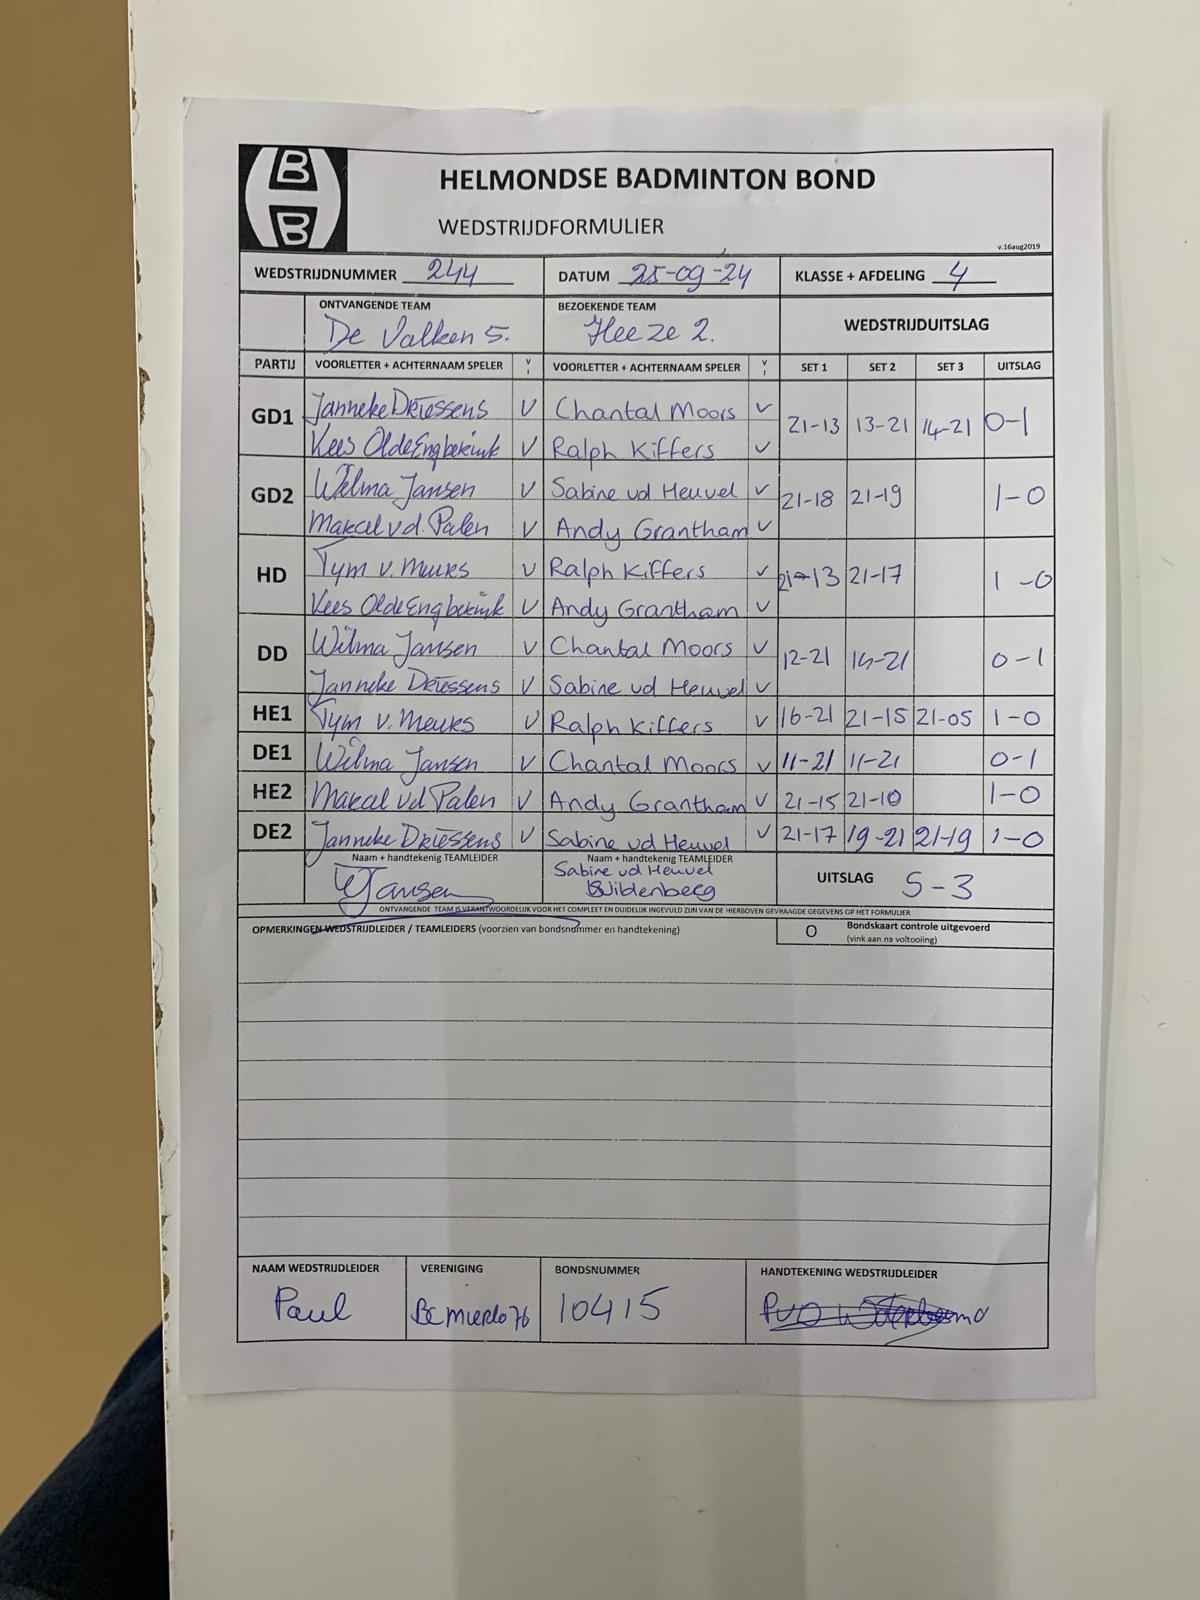 B
B
HELMONDSE BADMINTON BOND
WEDSTRIJDFORMULIER
v.16aug2019
WEDSTRIJDNUMMER 244 DATUM 25-09-24 KLASSE + AFDELING 4
ONTVANGENDE TEAM BEZOEKENDE TEAM
De Valken 5. Heeze 2. WEDSTRIJDUITSLAG
PARTIJ VOORLETTER + ACHTERNAAM SPELER V VOORLETTER + ACHTERNAAM SPELER V SET 1 SET 2 SET 3 UITSLAG
Janneke Driessens V Chantal Moors V
GD1 21-13 13-21 14-21 0-1
Kees Olde Engberink V Ralph Kiffers V
Wilma Jansen V Sabine vd Heuvel V
GD2 21-18 21-19 1-0
Marcel v.d. Palen V Andy Grantham V
Tym v. Meurs V Ralph Kiffers V
HD 21-13 21-17 1-0
Kees Olde Engberink V Andy Grantham V
Wilma Jansen V Chantal Moors V
DD 12-21 14-21 0-1
Janneke Driessens V Sabine vd Heuvel V
HE1 Tym v. Meurs V Ralph Kiffers V 16-21 21-15 21-05 1-0
DE1 Wilma Jansen V Chantal Moors V 11-21 11-21 0-1
HE2 Marcel vd Palen V Andy Grantham V 21-15 21-10 1-0
DE2 Janneke Driessens V Sabine vd Heuvel V 21-17 19-21 21-19 1-0
Naam + handtekenig TEAMLEIDER Naam + handtekenig TEAMLEIDER
WJansen Sabine vd Heuvel UITSLAG 5-3
ONTVANGENDE TEAM IS VERANTWOORDELIJK VOOR HET COMPLEET EN DUIDELIJK INGEVULD ZIJN VAN DE HIERBOVEN GEVRAAGDE GEGEVENS OP HET FORMULIER
OPMERKINGEN WEDSTRIJDLEIDER / TEAMLEIDERS (voorzien van bondsnummer en handtekening) O Bondskaart controle uitgevoerd
(vink aan na voltooiing)
NAAM WEDSTRIJDLEIDER VERENIGING BONDSNUMMER HANDTEKENING WEDSTRIJDLEIDER
Paul BC Mierlo 76 10415